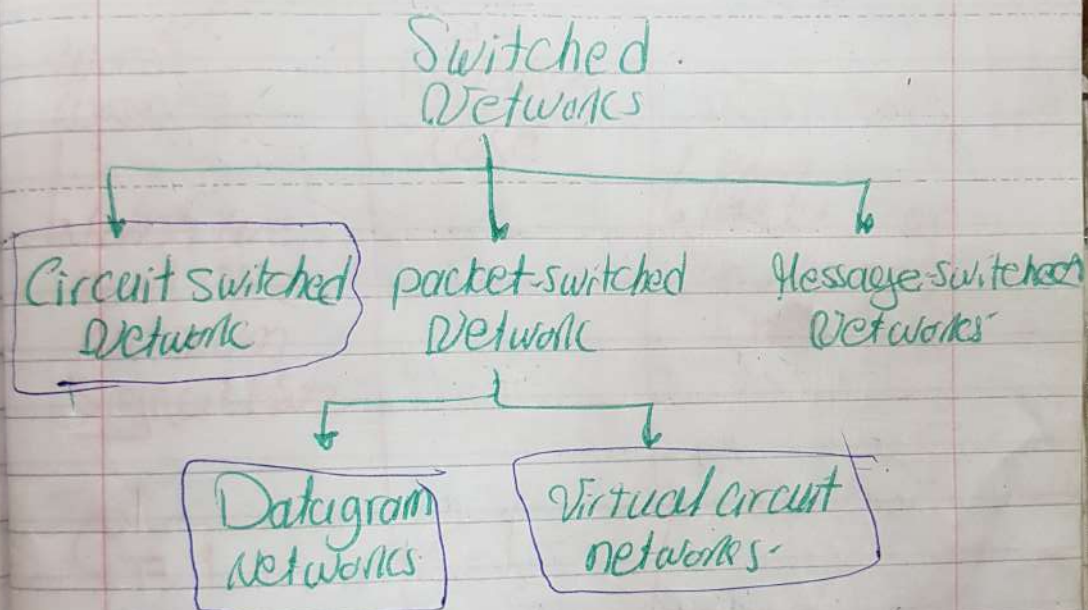 Switched
Networks
Circuit switched
Network
packet-switched
Network
Message-switched
Networks
Datagram
networks
Virtual circuit
networks.